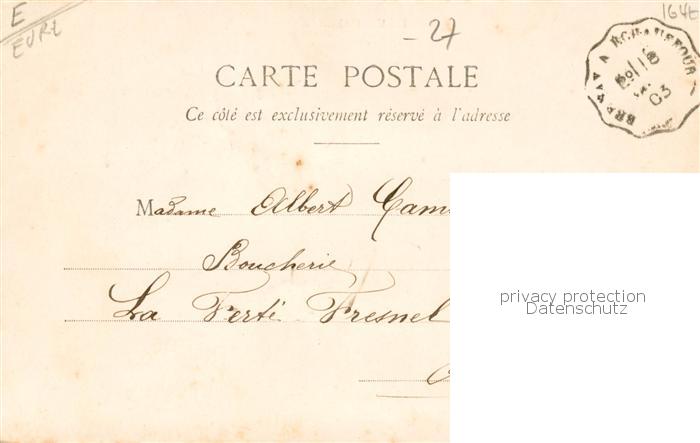 E
EURE
- 27
164E
CARTE POSTALE
Ce côté est exclusivement réservé à l'adresse
03
Madame Albert Cam
Boucherie
La Ferté Fresnel
privacy protection
Datenschutz